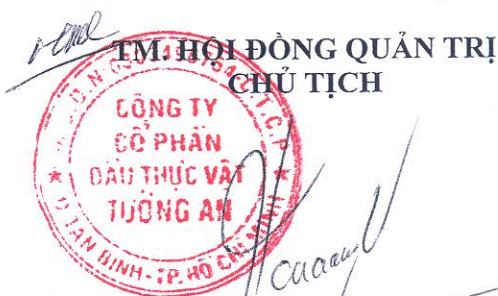 TM. HỘI ĐỒNG QUẢN TRỊ
CHỦ TỊCH
CÔNG TY
CỔ PHẦN
DẦU THỰC VẬT
TƯỜNG AN
Q. TÂN BÌNH - TP. HỒ CHÍ MINH